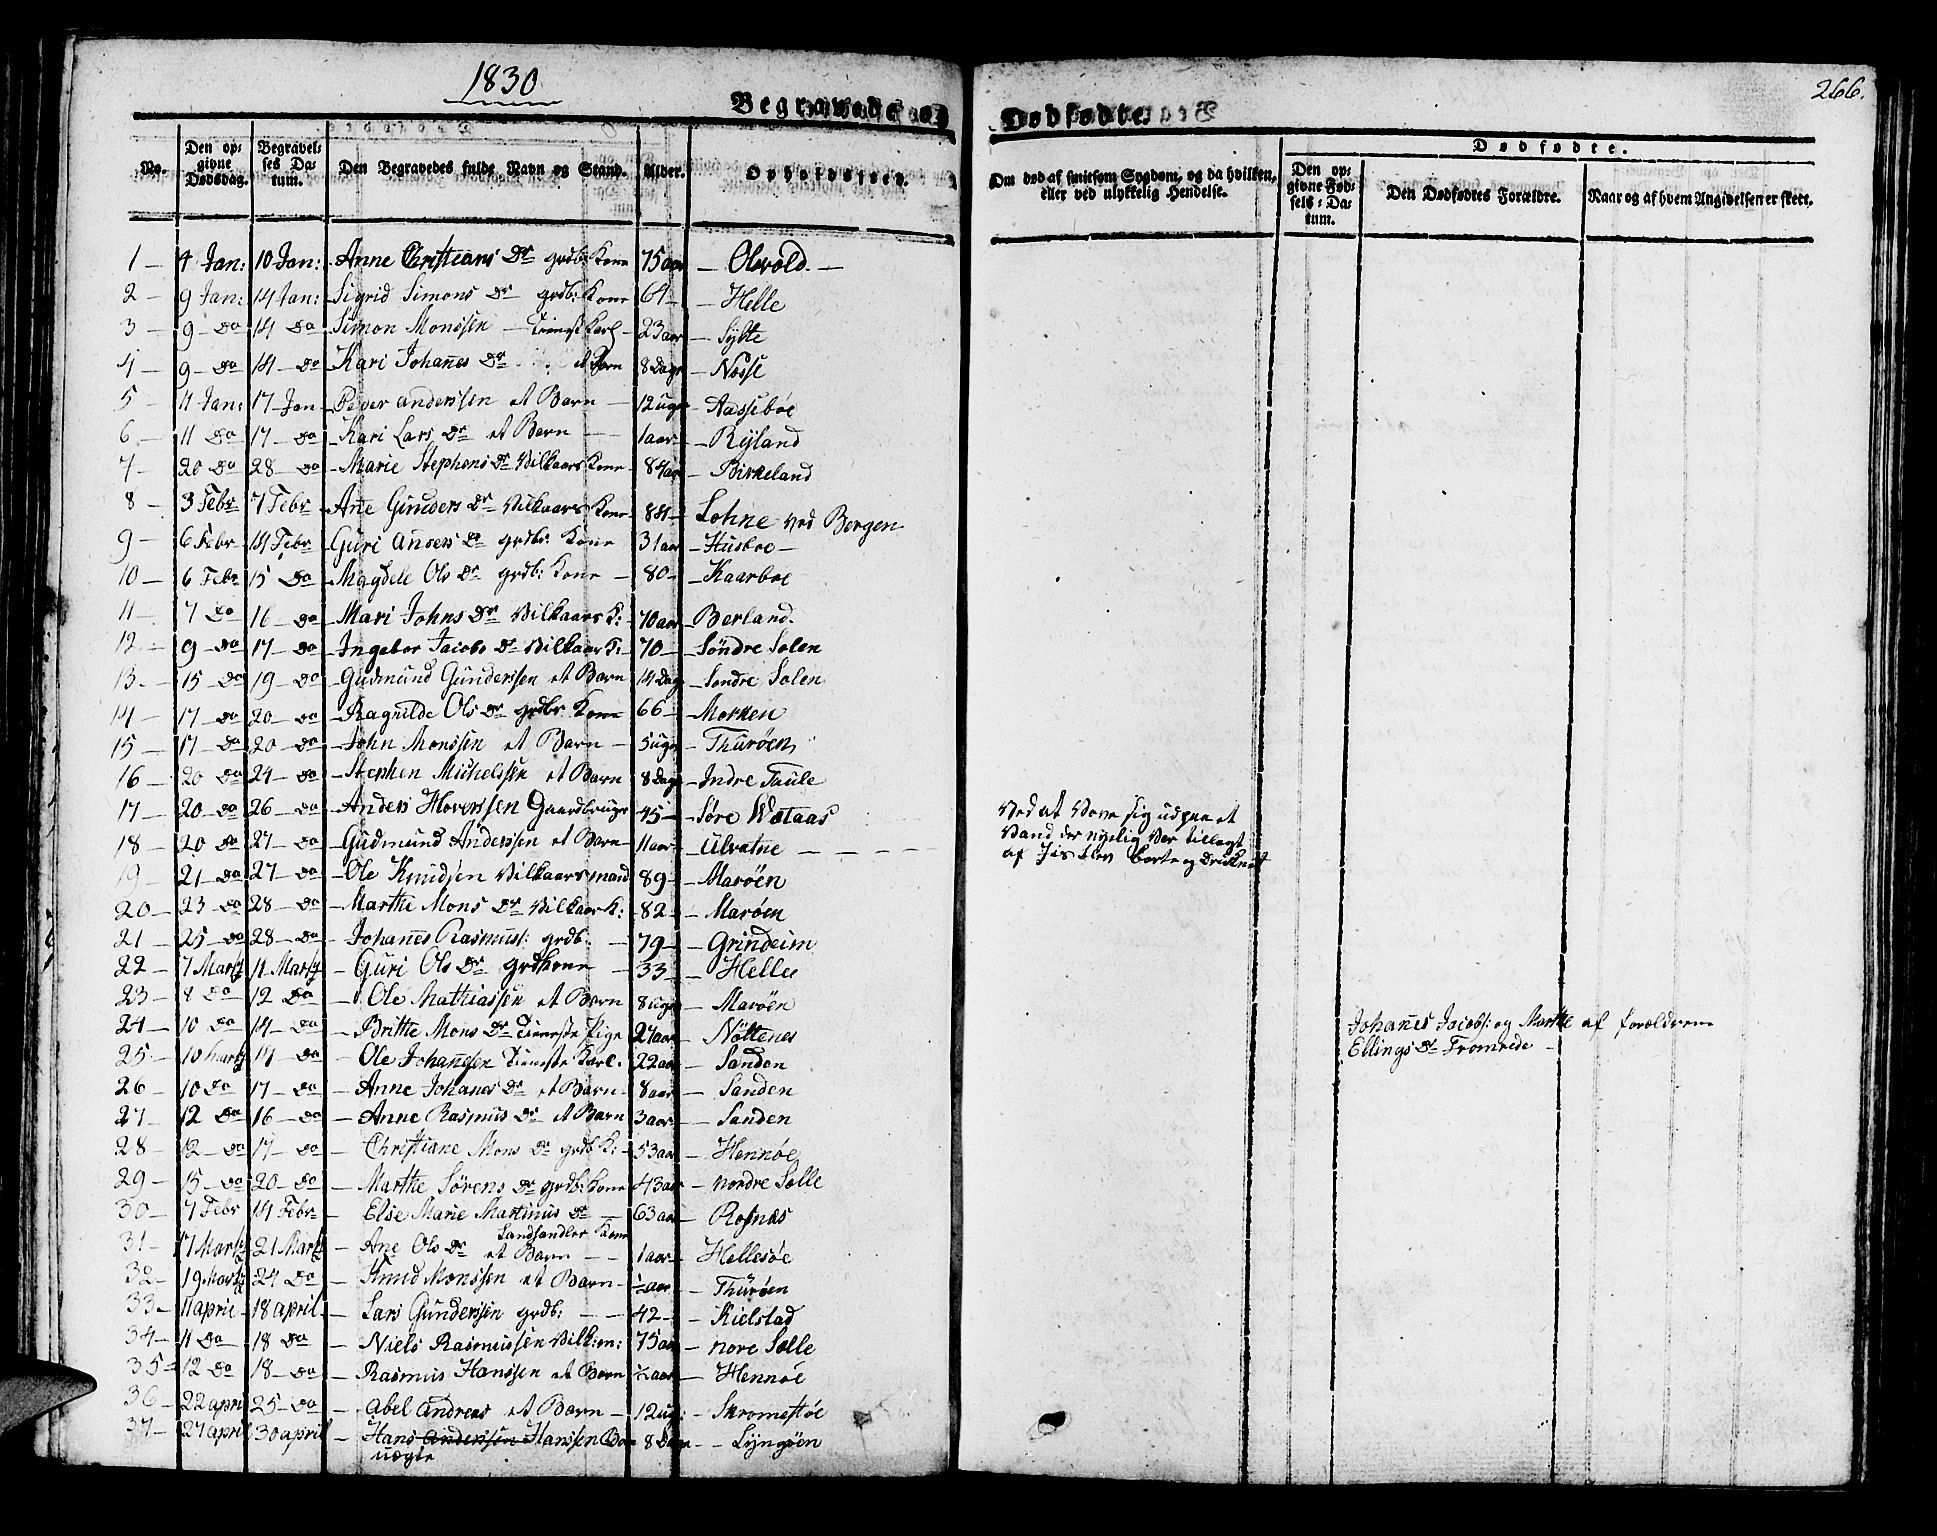 1830
Begravede og
No.
Den opgivne Dødsdag.
Begravelses Datum.
Den Begravedes fulde Navn og Stand.
Alder.
Opholdssted.
1 — 4 Jan: 10 Jan: Anne Christians Dr grdb: Kone 75 aar — Olsvold —
2 — 9 Jan: 14 Jan: Sigrid Simons Dr grdb: Kone 64 — Helle
3 — 9 — Do 14 Do Simon Monssen — Tienst Karl — 23 aar — Sylte
4 — 9 — Do 14 — Do Kari Johanes Dr et Barn 8 Dage — Nosse
5 — 11 Jan: 17 Jan — Peder Anderssen et Barn — 12 uger — Aassebøe
6 — 11 Do 17 — Do Kari Lars Dr et Barn — 1 aar — Ryland
7 — 20 Do 28 — Do Marie Stephens Dr Vilkaars Kone 84 aar — Birkeland
8 — 3 Febr 7 Febr Ane Gunders Dr Vilkaars Kone 84 — Lohne ved Bergen
9 — 6 Febr 14 Febr Guri Ansers Dr grdb: Kone 31 aar — Husboe —
10 — 6 Febr 15 Do Magdele Ols Dr grdb: Kone — 80 — Kaarboe
11 — 7 Do 16 — Do Mari Johns Dr Vilkaars K: 70 aar — Berland.
12 — 9 — Do 17 — Do Ingebor Jacobs Dr Vilkaar K: 70 — Søndre Solen
13. — 15 — Do 19 — Do Gudmund Gunderssen et Barn 14 Dage — Søndre Solen
14 — 17 — Do 20 — Do Ragnilde Ols Dr grdbr Kone 66 — Morken
15 — 17 — Do 20 — Do John Monssen et Barn — 5 uger — Thurøen
16 — 20 Do 24 — Do Stephen Michelssen et Barn 8 Dage — Indre Taule
17 — 20 — Do 26 — Do Anders Hoverssen Gaardbruger 45 — Søre Wataas
18 — 20 Do 27 — Do Gudmund Anderssen et Barn 11 aar — Ulvatne — — — —
19 — 21 — Do 27 — Do Ole Knudsen Vilkaarsmand 89 — Marøen
20 — 23 — Do 28 — Do Marthe Mons Dr Vilkaar K: 82 — Marøen
21 — 25 — Do 28 — Do Johanes Rasmuss: grdb. — 79 — Grindeim
22 — 7 Martz 11 Martz — Guri Ols Dr grdkone — 33 — Helle
23 — 8 Do 12 Do — Ole Mathiassen et Barn 8 uger — Marøen
24 — 10 Do 14 — Do — Britte Mons Dr Tieneste Pige 24 aar — Nøttenes
25 — 10 Martz 14 — Do — Ole Johanssen Tieneste Karl. 22 aar — Sanden
26 — 10 Do 17 — Do — Anne Johanes Dr et Barn 8 aar — Sanden
27 — 12 Do 16 — Do — Anne Rasmus Dr et Barn 3 aar — Sanden
28 — 12 — Do 17 — Do — Christiane Mons Dr grdb K: 53 aar — Hennøe
29 — 15 — Do 20 — Do — Marthe Sørens Dr grdb: Kone 43 aar — nordre Solle
30 — 7 Febr 14 Febr — Else Marie Martinus Dr — 63 aar — Rognæs
Landhandler Kone
31 — 17 Martz 21 Martz — Ane Ols Dr et Barn — — 1 aar — Hellesøe
32 — 19 Martz 24 Do — Knud Monssen et Barn — ½ aar — Thurøen
33 — 11 april 18 april — Lars Gunderssen grdb: — — 42 — Kielstad
34 — 11 Do 18 Do — Niels Rasmussen Vilk: m: 75 aar — nore Solle
35 = 12 Do 18 — Do — Rasmus Hanssen et Barn ½ aar — Hennøe
36 — 22 april 25 — Do — Abel Andreas et Barn — 12 uger: — Skromestøe
37 — 27 april 30 april — Hans Anderssen Hanssen Barn 8 Dage — Lyngøen
uægte
266.
Dødfødte.
Om død af smitsom Sygdom, og da hvilken, eller ved ulykkelig Hendelse.
Dødfødte.
Den opgivne Fødsels-Datum.
Den Dødfødtes Forældre.
Naar og af hvem Angivelsen er skeet.
Ved at Vove sig ud paa et
Vand der nyelig var tillagt
af Iis blev borte og Druknet
Johanes Jacobs: og Marthe af forældrene
Ellings Dr Fromrede —